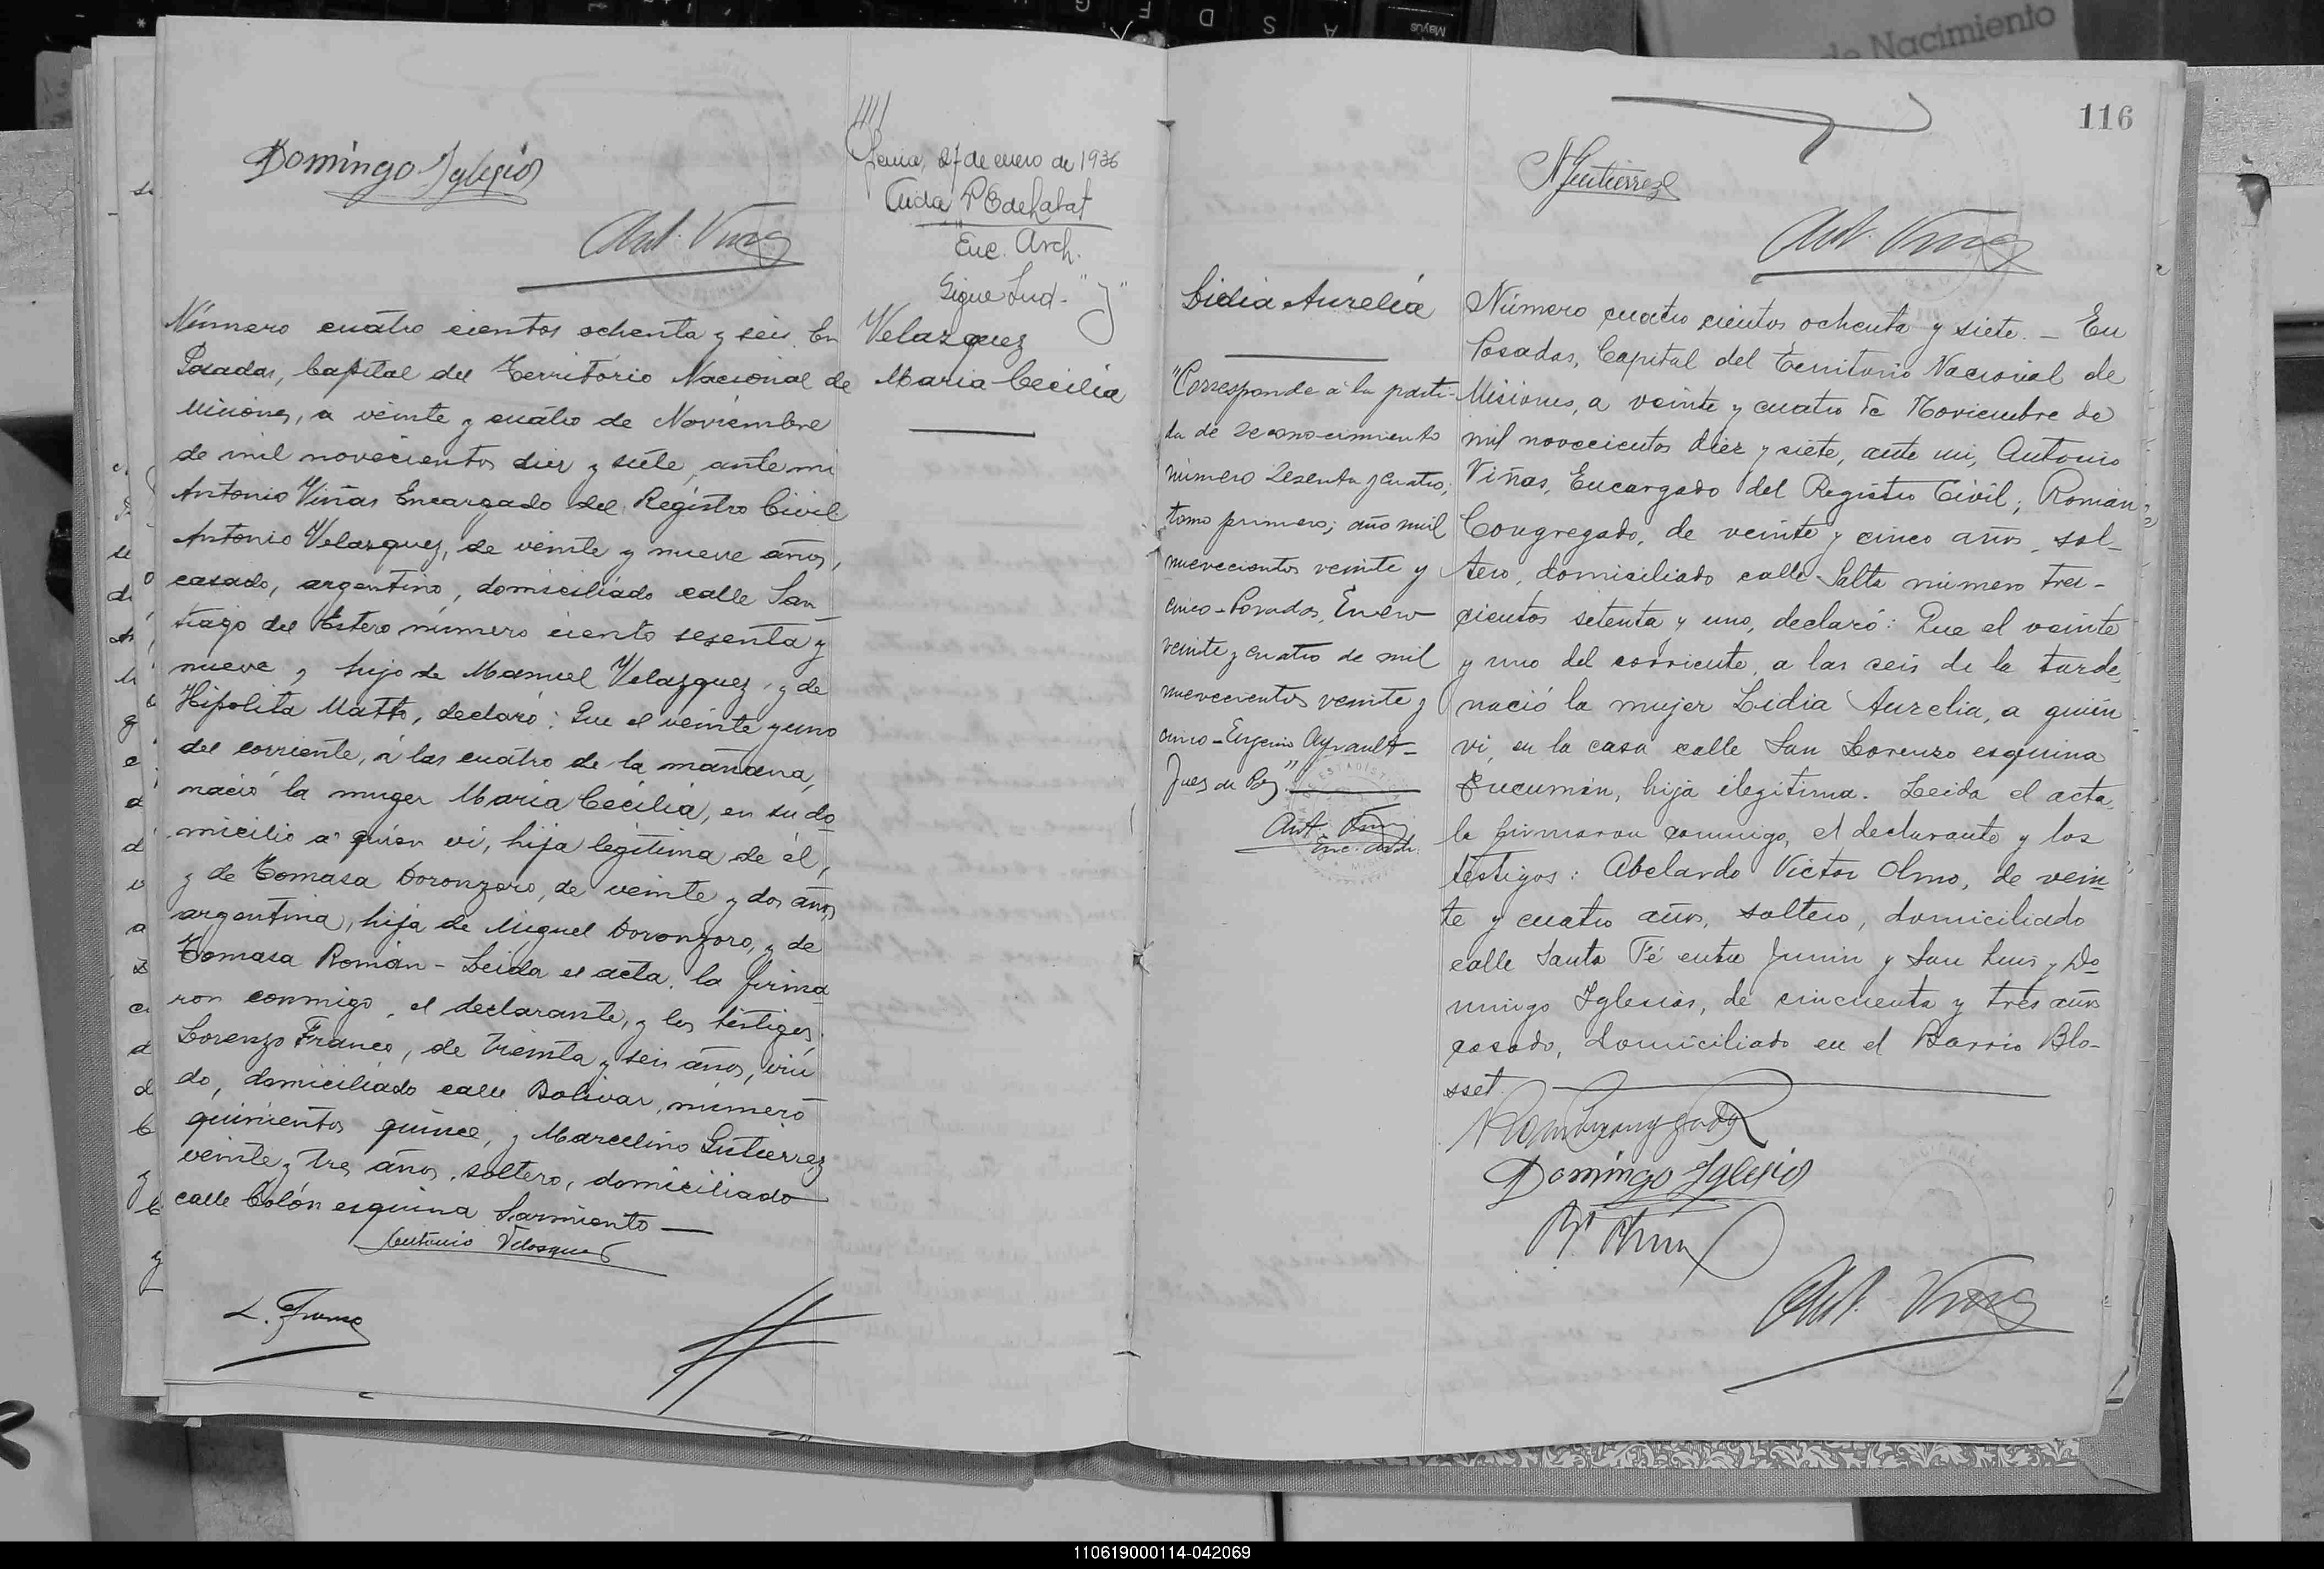 de Nacimiento
Domingo Iglesias
Ant. Viñas
Número cuatro cientos ochenta y seis. En
Posadas, Capital del Territorio Nacional de
Misiones, a veinte y cuatro de Noviembre
de mil novecientos diez y siete, ante mi
Antonio Viñas Encargado del Registro Civil
Antonio Velazquez, de veinte y nueve años,
casado, argentino, domiciliado calle San
tiago del Estero número ciento sesenta y
nueve, hijo de Manuel Velazquez, y de
Hipolita Matto, declaró: Que el veinte y uno
del corriente, á las cuatro de la mañana,
nació la muger Maria Cecilia, en su do
micilio a quien vi, hija legítima de él,
y de Tomasa Doronzoro, de veinte y dos años
argentina, hija de Miguel Doronzoro, y de
Tomasa Román - Leida el acta, la firma
ron conmigo, el declarante, y los testigos
Lorenzo Franco, de treinta y seis años, viu
do, domiciliado calle Bolivar, número
quinientos quince, y Marcelino Gutierrez
veinte y tres años, soltero, domiciliado
calle Colón esquina Sarmiento
Antonio Velasquez
L. Franco
27 de enero de 1936
Enc. Arch.
Sigue Lud- "J"
Velazquez
Maria Cecilia
116
Gutierrez
Ant. Viñas
Lidia Aurelia
"Corresponde a la parti-
da de reconocimiento
número sesenta y cuatro,
tomo primero; año mil
nuevecientos veinte y
cinco - Posadas, Enero
veinte y cuatro de mil
nuevecientos veinte y
cinco - Eugenio Ayrault -
Juez de Paz"
Ant. Viñas
Enc. Arch.
Número cuatro cientos ochenta y siete. - En
Posadas, Capital del Territorio Nacional de
Misiones, a veinte y cuatro de Noviembre de
mil novecientos diez y siete, ante mi, Antonio
Viñas, Encargado del Registro Civil; Roman
Congregado, de veinte y cinco años, sol-
tero, domiciliado calle Salta número tres-
cientos setenta y uno, declaró: Que el veinte
y uno del corriente, a las seis de la tarde,
nació la mujer Lidia Aurelia, a quien
vi, en la casa calle San Lorenzo esquina
Tucumán, hija ilegitima. Leida el acta,
la firmaron conmigo, el declarante y los
testigos: Abelardo Victor Olmo, de vein
te y cuatro años, soltero, domiciliado
calle Santa Fé entre Junin y San Luis y Do
mingo Iglesias, de cincuenta y tres años
casado, domiciliado en el Barrio Blo-
sset.
Domingo Iglesias
Ant. Viñas
110619000114-042069